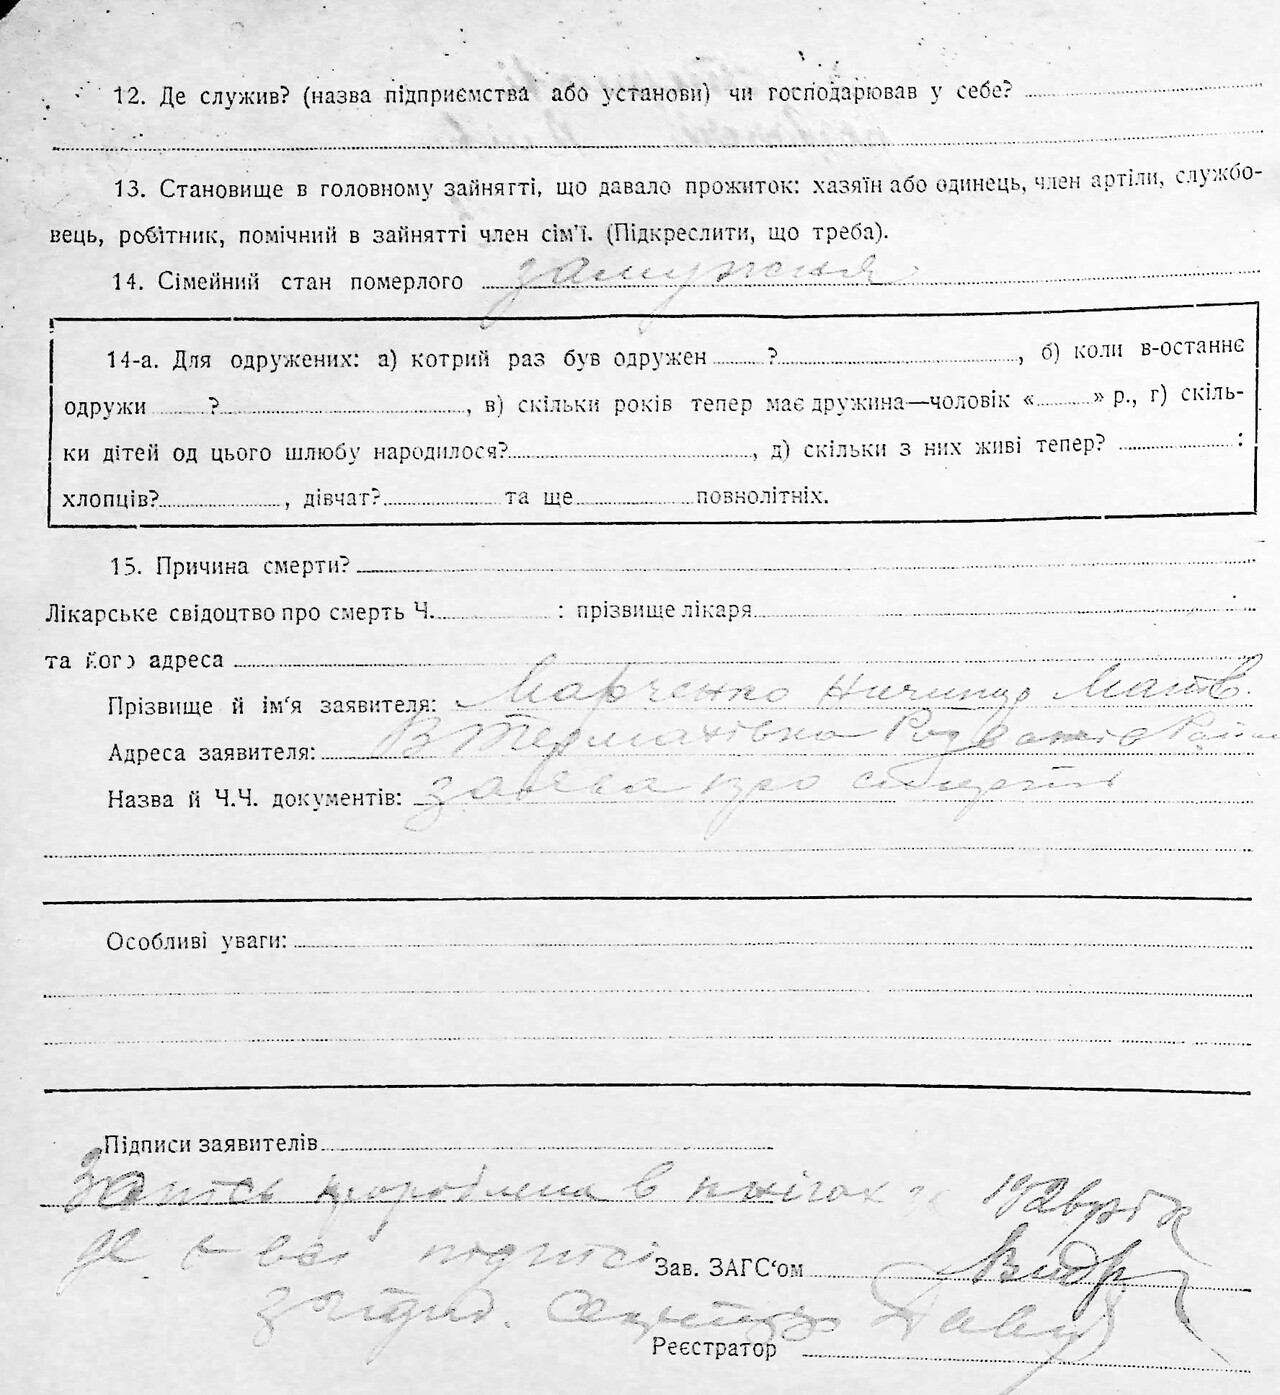 12. Де служив? (назва підприємства або установи) чи господарював у себе?
13. Становище в головному зайнятті, що давало прожиток: хазяїн або одинець, член артіли, службо-
вець, робітник, помічний в зайнятті член сім'ї. (Підкреслити, що треба).
14. Сімейний стан померлого замужняя
14-а. Для одружених: а) котрий раз був одружен ? , б) коли в-останнє
одружи ? , в) скільки років тепер має дружина—чоловік « » р., г) скіль-
ки дітей од цього шлюбу народилося? , д) скільки з них живі тепер? :
хлопців? , дівчат? та ще повнолітніх.
15. Причина смерти?
Лікарське свідоцтво про смерть Ч. : прізвище лікаря
та його адреса
Прізвище й ім'я заявителя: Марченко Ничипир Матв.
Адреса заявителя: В Термахівка
Назва й Ч.Ч. документів: заява про смерть
Особливі уваги:
Підписи заявителів
Запись в книгах
де є всі підписі
Зав. ЗАГС'ом
Реєстратор